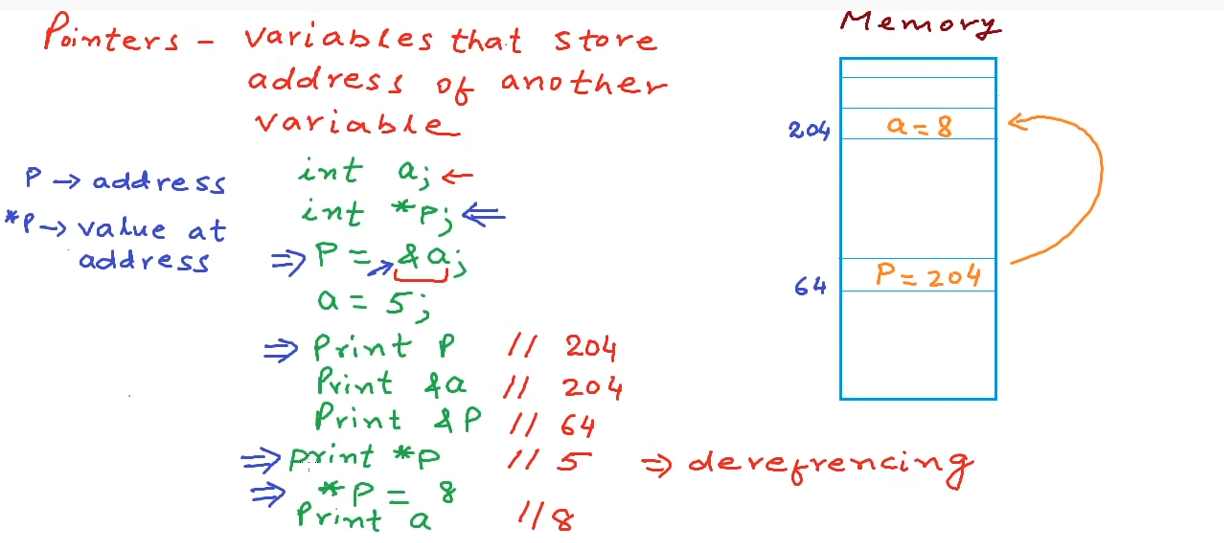 Pointers - variables that store
address of another
variable
P → address
*P → value at
address
int a; ←
int *P; ⇐
⇒ P = &a;
a = 5;
⇒ Print P // 204
Print &a // 204
Print &P // 64
⇒ print *p // 5 ⇒ derefrencing
⇒ *P = 8
Print a // 8
Memory
204 a = 8
64 P = 204